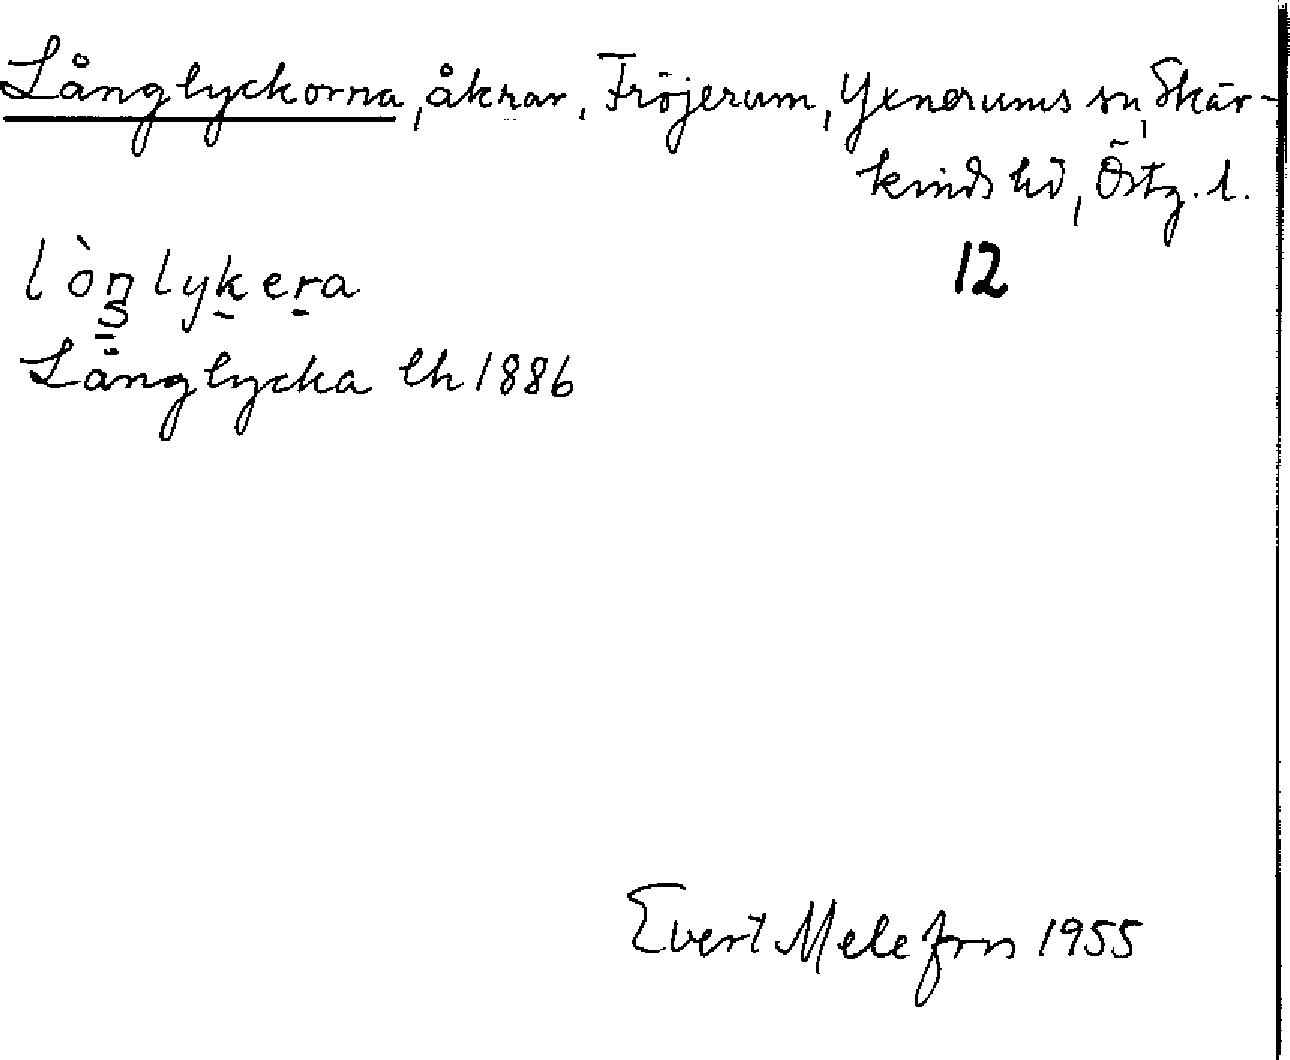 Långlyckorna, åkrar, Fröjerum, Yxnerums sn, Skär-
kinds hd, Östg. l.
12
lòŋlykera
Långlycka lh 1886
Evert Melefors 1955